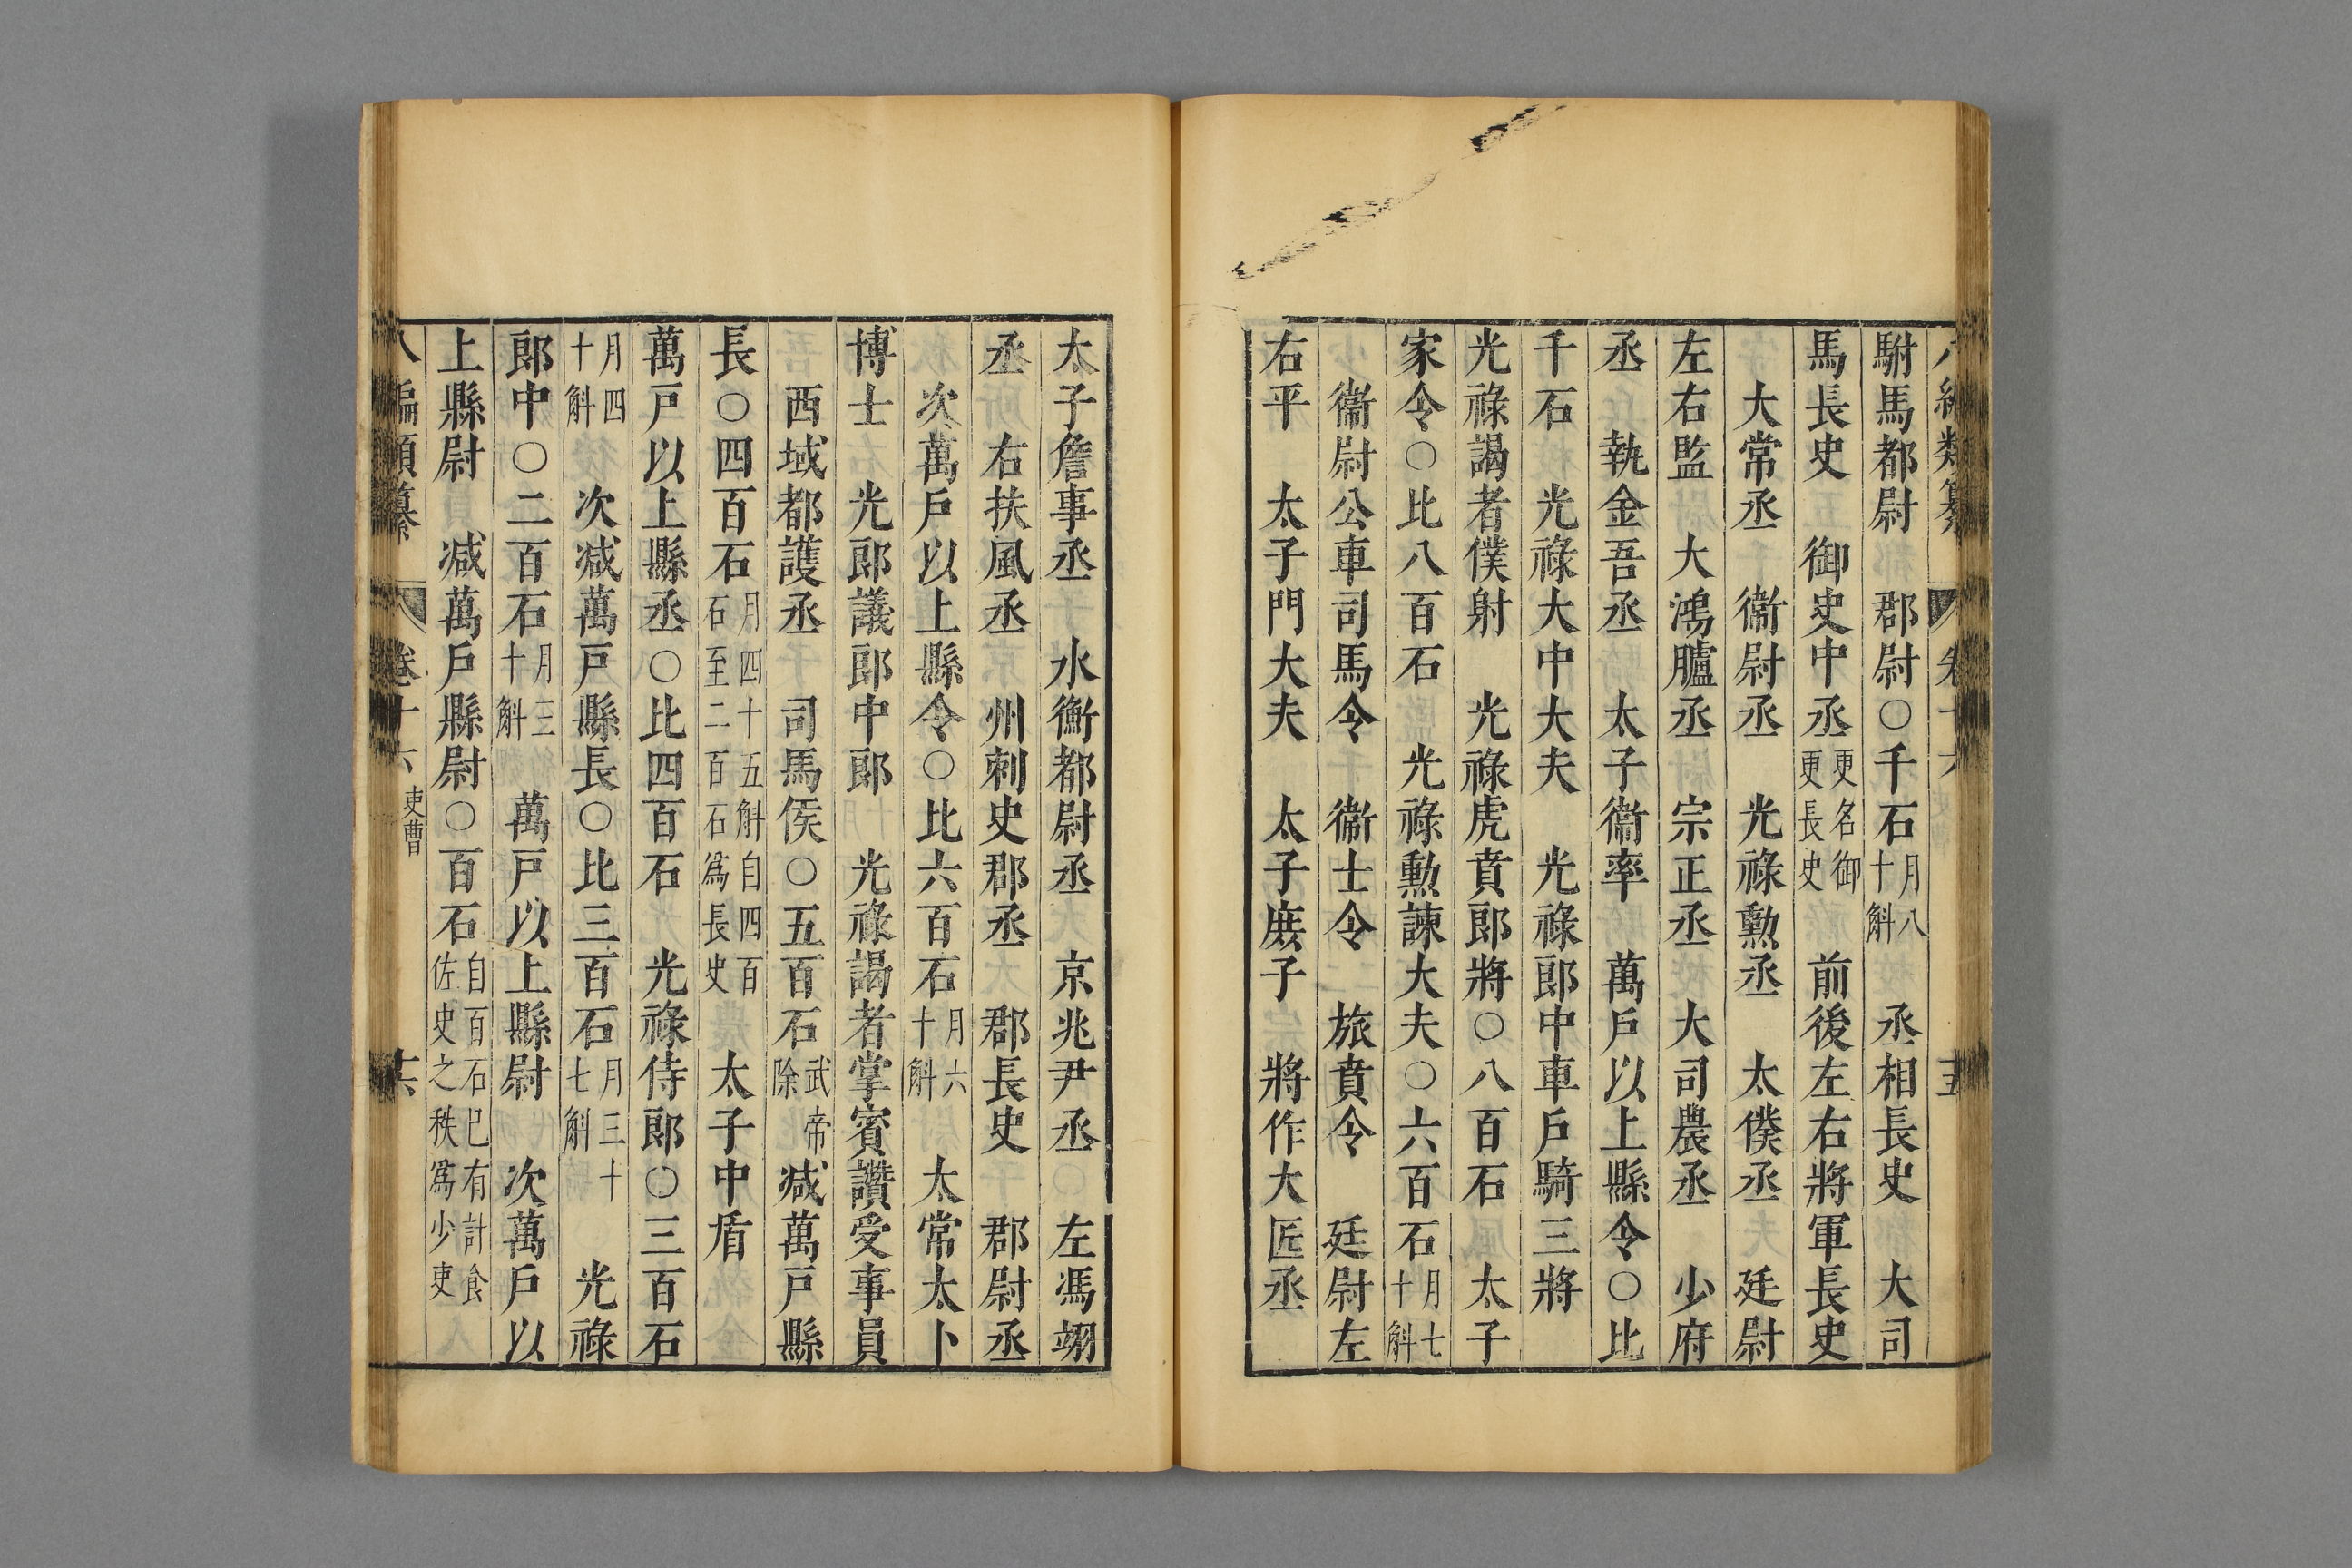 駙馬都尉　郡尉○千石月八十斛　丞相長史　大司
馬長史　御史中丞更名御更長史　前後左右將軍長史
大常丞　衞尉丞　光祿勲丞　太僕丞　廷尉
左右監　大鴻臚丞　宗正丞　大司農丞　少府
丞　執金吾丞　太子衞率　萬戶以上縣令○比
千石　光祿大中大夫　光祿郎中車戶騎三將
光祿謁者僕射　光祿虎賁郎將○八百石　太子
家令○比八百石　光祿勲諫大夫○六百石月七十斛
衞尉公車司馬令　衞士令　旅賁令　廷尉左
右平　太子門大夫　太子庶子　將作大匠丞
太子詹事丞　水衡都尉丞　京兆尹丞　左馮翊
丞　右扶風丞　州刺史郡丞　郡長史　郡尉丞
次萬戶以上縣令○比六百石月六十斛　太常太卜
博士　光郎議郎中郎　光祿謁者掌賓讚受事員
西域都護丞　司馬侯○五百石武帝除　减萬戶縣
長○四百石月四十五斛自四百石至二百石爲長史　太子中盾
萬戶以上縣丞○比四百石　光祿侍郎○三百石
月四十斛　次减萬戶縣長○比三百石月三十七斛　光祿
郎中○二百石月三十斛　萬戶以上縣尉　次萬戶以
上縣尉　减萬戶縣尉○百石自百石已有計食佐史之秩爲少吏
八編類纂　卷十六　吏曹　十六